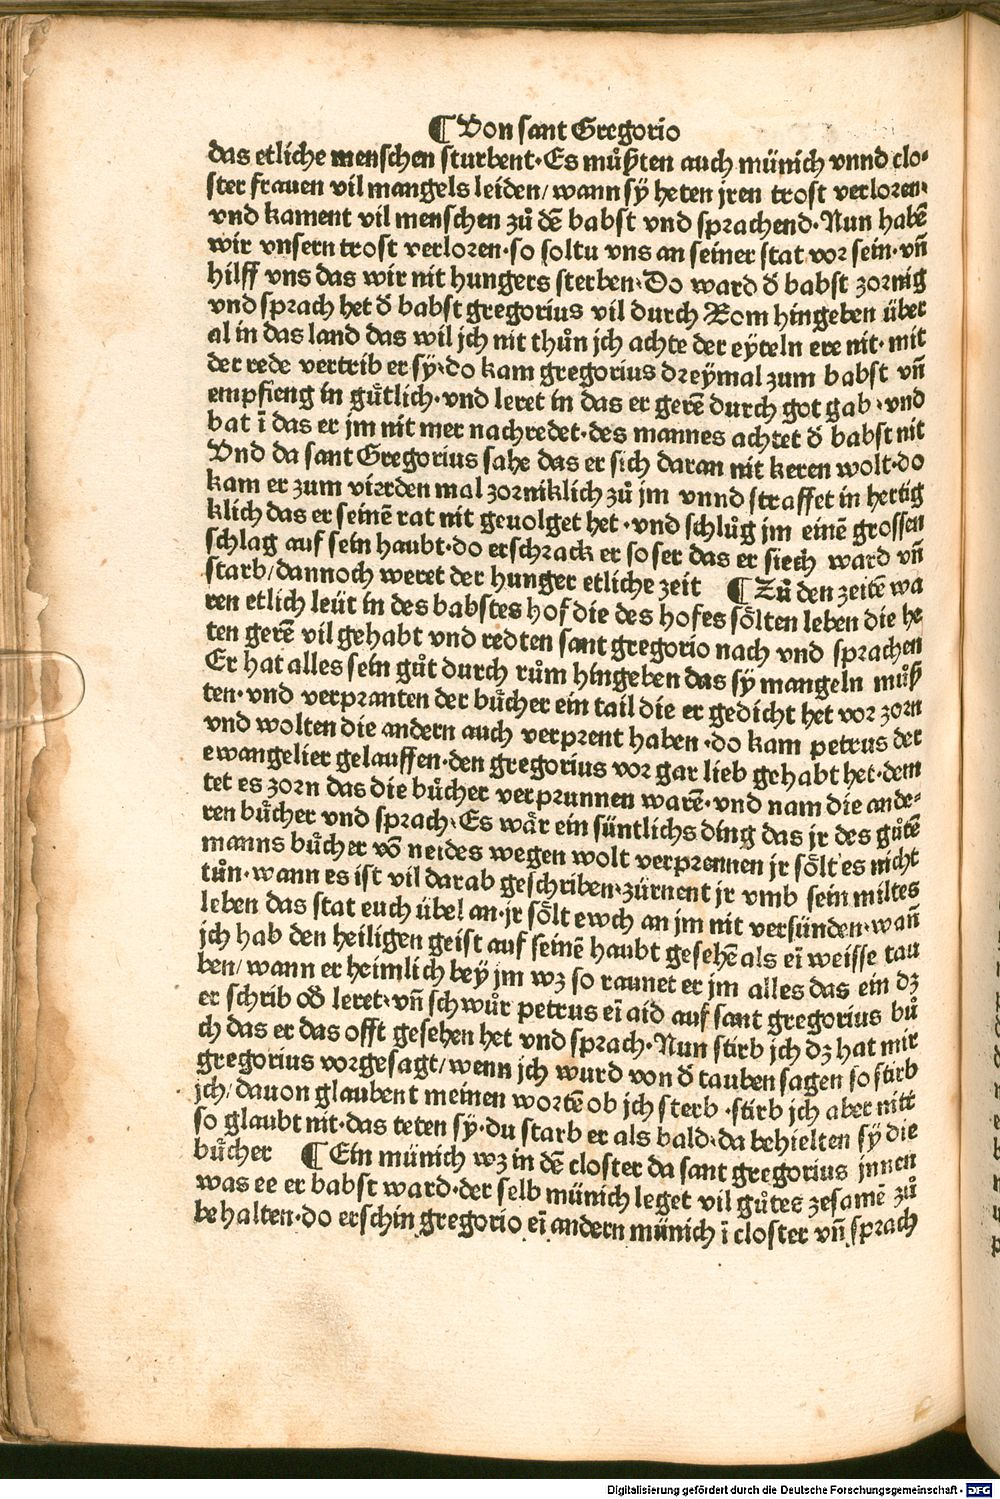 ¶ Von sant Gregorio
das etliche menschen sturbent·Es muͦßten auch münich vnnd clo⸗
ster frauen vil mangels leiden/ wann sÿ heten jren trost verloren·
vnd kament vil menschen zuͦ dē babst vnd sprachend·Nun habē
wir vnsern trost verloren·so soltu vns an seiner stat vor sein·vñ
hilff vns das wir nit hungers sterben·Do ward d̄ babst zornig
vnd sprach het d̄ babst gregorius vil durch Rom hingeben über
al in das land das wil jch nit thuͦn jch achte der eÿteln ere nit· mit
der rede vertrib er sÿ·do kam gregorius dreÿmal zum babst vñ
empfieng in guͤtlich·vnd leret in das er gerē durch got gab·vnd
bat ī das er jm nit mer nachredet·des mannes achtet d̄ babst nit
Vnd da sant Gregorius sahe das er sich daran nit keren wolt·do
kam er zum vierden mal zorniklich zuͦ jm vnnd straffet in hertig
klich das er seinē rat nit geuolget het·vnd schluͦg jm einē grossen
schlag auf sein haubt·do erschrack er so ser das er siech ward vñ
starb/dannoch weret der hunger etliche zeit ¶ Zuͦ den zeitē wa
ren etlich leüt in des babstes hof die des hofes soͤlten leben die he
ten gerē vil gehabt vnd redten sant gregorio nach vnd sprachen
Er hat alles sein guͦt durch ruͦm hingeben das sÿ mangeln muͦß
ten·vnd verpranten der buͤcher ein tail die er gedicht het vor zorn
vnd wolten die andern auch verprent haben·do kam petrus der
ewangelier gelauffen·den gregorius vor gar lieb gehabt het·dem
tet es zorn das die buͤcher verprunnen warē·vnd nam die ande⸗
ren buͤcher vnd sprach·Es waͤr ein süntlichs ding das jr des guͦtē
manns buͤcher vō neides wegen wolt verprennen jr soͤlt es nicht
tuͦn·wann es ist vil darab geschriben·zürnent jr vmb sein miltes
leben das stat euch übel an·jr soͤlt ewch an jm nit versünden·wañ
jch hab den heiligen geist auf seinē haubt gesehē als eī weisse tau
ben/wann er heimlich bey jm wz so raunet er jm alles das ein dz
er schrib od̄ leret·vñ schwuͦr petrus eī aid auf sant gregorius buͦ
ch das er das offt gesehen het vnd sprach·Nun stirb jch dz hat mir
gregorius vorgesagt/wenn jch wurd von d̄ tauben sagen so stirb
jch/dauon glaubent meinen wortē ob jch sterb·stirb jch aber nitt
so glaubt nit·das teten sÿ·du starb er als bald·da behielten sÿ die
buͤcher ¶ Ein münich wz in dē closter da sant gregorius jnnen
was ee er babst ward·der selb münich leget vil guͦtes zesamē zuͦ
behalten·do erschin gregorio eī andern münich ī closter vñ sprach
Digitalisierung gefördert durch die Deutsche Forschungsgemeinschaft - DFG